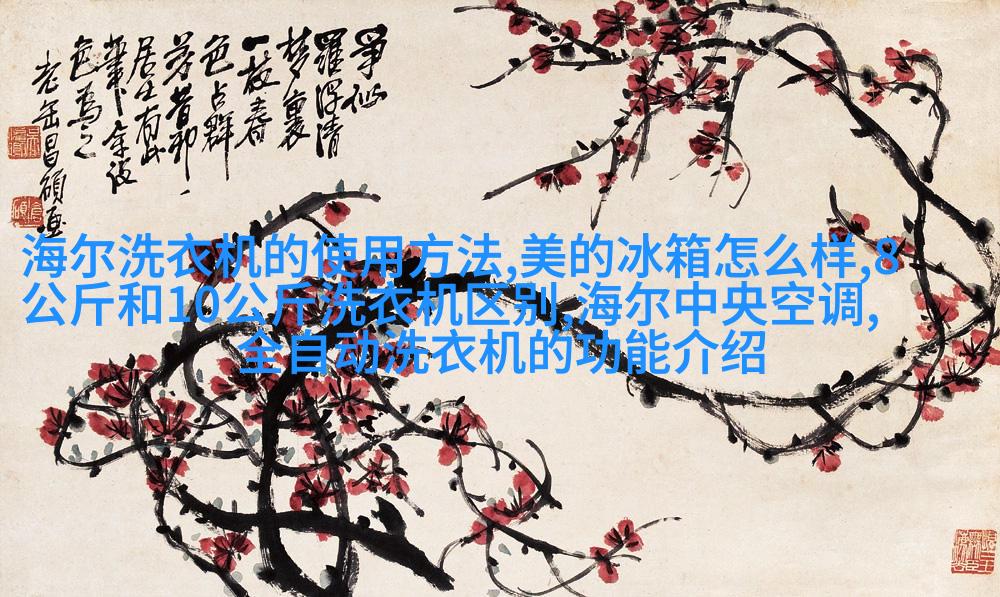 争似
羅浮清
梦裏
一枝春
色占群
芳昔邪
居士有此
筆
色為之
老缶昌碩画
海尔洗衣机的使用方法,美的冰箱怎么样,8
公斤和10公斤洗衣机区别,海尔中央空调,
全自动洗衣机的功能介绍